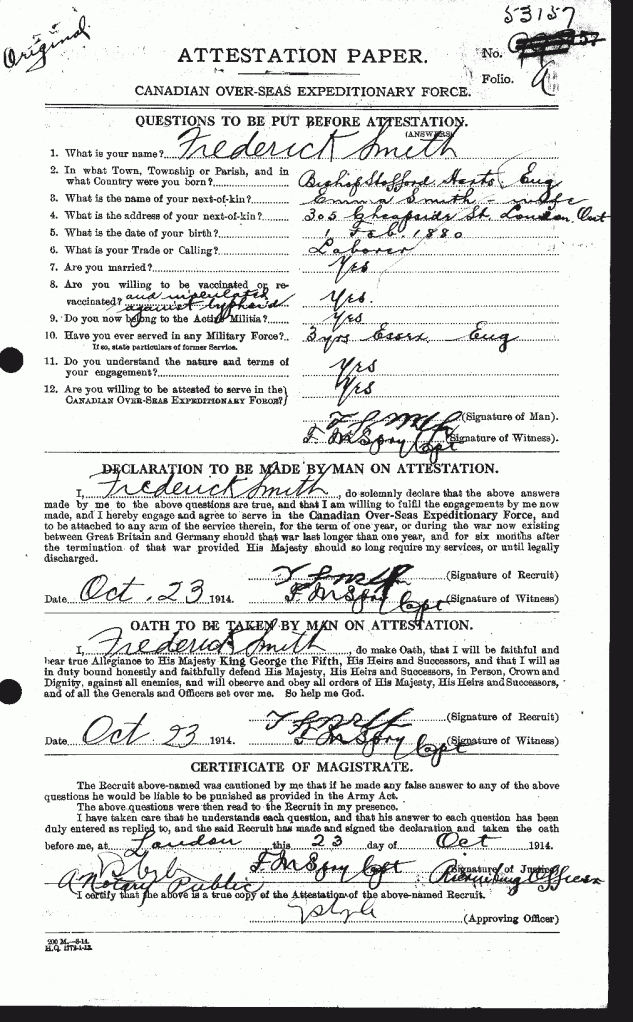 53157
Original
ATTESTATION PAPER.
No.
Folio.
CANADIAN OVER-SEAS EXPEDITIONARY FORCE.
QUESTIONS TO BE PUT BEFORE ATTESTATION.
(ANSWERS)
1. What is your name? Frederick Smith
2. In what Town, Township or Parish, and in
what Country were you born? Bishop Stafford Herts, Eng
3. What is the name of your next-of-kin? Emma Smith - wife
4. What is the address of your next-of-kin? 305 Cheapside St. London, Ont
5. What is the date of your birth? 1 Feb. 1880
6. What is your Trade or Calling? Laborer
7. Are you married? Yes
8. Are you willing to be vaccinated or re-
vaccinated? and inoculated against typhoid Yes.
9. Do you now belong to the Active Militia? Yes
10. Have you ever served in any Military Force? 3 yrs Essex Eng
If so, state particulars of former Service.
11. Do you understand the nature and terms of
your engagement? Yes
12. Are you willing to be attested to serve in the Yes
CANADIAN OVER-SEAS EXPEDITIONARY FORCE?
F Smith (Signature of Man).
Capt (Signature of Witness).
DECLARATION TO BE MADE BY MAN ON ATTESTATION.
I, Frederick Smith, do solemnly declare that the above answers
made by me to the above questions are true, and that I am willing to fulfil the engagements by me now
made, and I hereby engage and agree to serve in the Canadian Over-Seas Expeditionary Force, and
to be attached to any arm of the service therein, for the term of one year, or during the war now existing
between Great Britain and Germany should that war last longer than one year, and for six months after
the termination of that war provided His Majesty should so long require my services, or until legally
discharged.
F Smith (Signature of Recruit)
Date Oct. 23 1914. Capt (Signature of Witness)
OATH TO BE TAKEN BY MAN ON ATTESTATION.
I, Frederick Smith, do make Oath, that I will be faithful and
bear true Allegiance to His Majesty King George the Fifth, His Heirs and Successors, and that I will as
in duty bound honestly and faithfully defend His Majesty, His Heirs and Successors, in Person, Crown and
Dignity, against all enemies, and will observe and obey all orders of His Majesty, His Heirs and Successors,
and of all the Generals and Officers set over me. So help me God.
F Smith (Signature of Recruit)
Date Oct 23 1914. Capt (Signature of Witness)
CERTIFICATE OF MAGISTRATE.
The Recruit above-named was cautioned by me that if he made any false answer to any of the above
questions he would be liable to be punished as provided in the Army Act.
The above questions were then read to the Recruit in my presence.
I have taken care that he understands each question, and that his answer to each question has been
duly entered as replied to, and the said Recruit has made and signed the declaration and taken the oath
before me, at London this 23 day of Oct 1914.
Capt (Signature of Justice)
Recruiting Officer
A Notary Public
I certify that the above is a true copy of the Attestation of the above-named Recruit.
(Approving Officer)
200 M.—8-14.
H.Q. 1772-1-13.